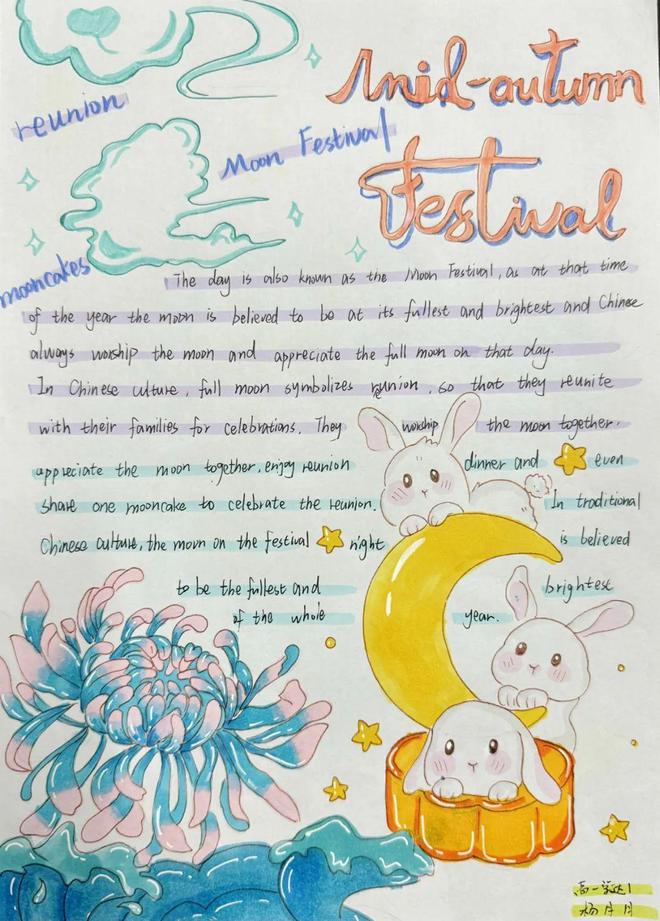 Mid-autumn
Festival
reunion
Moon Festival
mooncakes
The day is also known as the Moon Festival, as at that time
of the year the moon is believed to be at its fullest and brightest and Chinese
always worship the moon and appreciate the full moon on that day.
In Chinese culture, full moon symbolizes reunion, so that they reunite
with their families for celebrations. They worship the moon together.
appreciate the moon together, enjoy reunion dinner and even
share one mooncake to celebrate the reunion. In traditional
Chinese culture, the moon on the festival night is believed
to be the fullest and brightest
of the whole year.
高一
杨月月